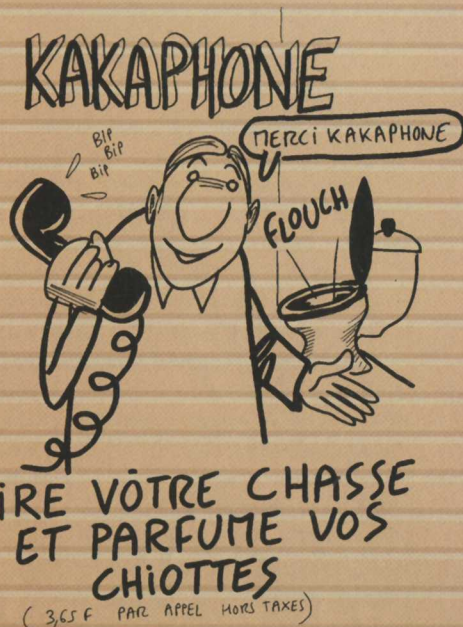 KAKAPHONE
BIP
BiP
BiP
MERCi KAKAPHONE
FLOUCH
iRE VÔTRE CHASSE
ET PARFUME VOS
CHiOTTES
( 3,65 F PAR APPEL HORS TAXES)